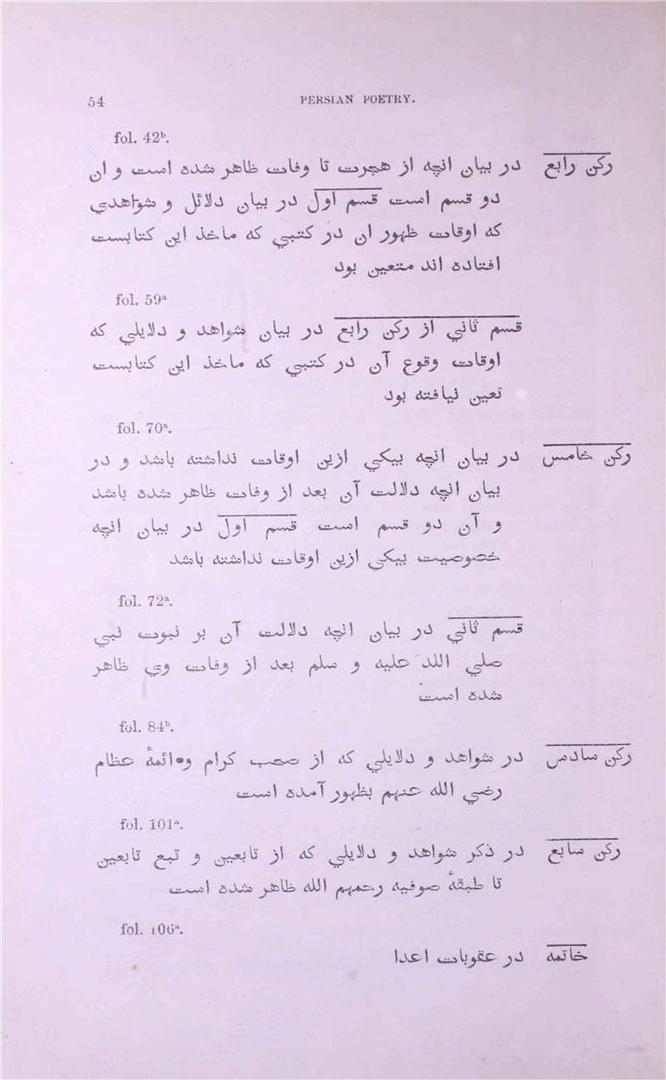 54 PERSIAN POETRY.
fol. 42ᵇ.
ركن رابع در بيان انچه از هجرت تا وفات ظاهر شده است و ان
دو قسم است قسم اول در بيان دلائل و شواهدي
كه اوقات ظهور ان در كتبي كه ماخذ اين كتابست
افتاده اند متعين بود
fol. 59ᵃ
قسم ثاني از ركن رابع در بيان شواهد و دلايلي كه
اوقات وقوع آن در كتبي كه ماخذ اين كتابست
تعين نيافته بود
fol. 70ᵃ.
ركن خامس در بيان انچه بيكي ازين اوقات نداشته باشد و در
بيان انچه دلالت آن بعد از وفات ظاهر شده باشد
و آن دو قسم است قسم اول در بيان انچه
خصوصيت بيكي ازين اوقات نداشته باشد
fol. 72ᵃ.
قسم ثاني در بيان انچه دلالت آن بر نبوت نبي
صلي الله عليه و سلم بعد از وفات وي ظاهر
شده است
fol. 84ᵇ.
ركن سادس در شواهد و دلايلي كه از صحب كرام و ائمهٔ عظام
رضي الله عنهم بظهور آمده است
fol. 101ᵃ.
ركن سابع در ذكر شواهد و دلايلي كه از تابعين و تبع تابعين
تا طبقهٔ صوفيه رحمهم الله ظاهر شده است
fol. 106ᵃ.
خاتمه در عقوبات اعدا